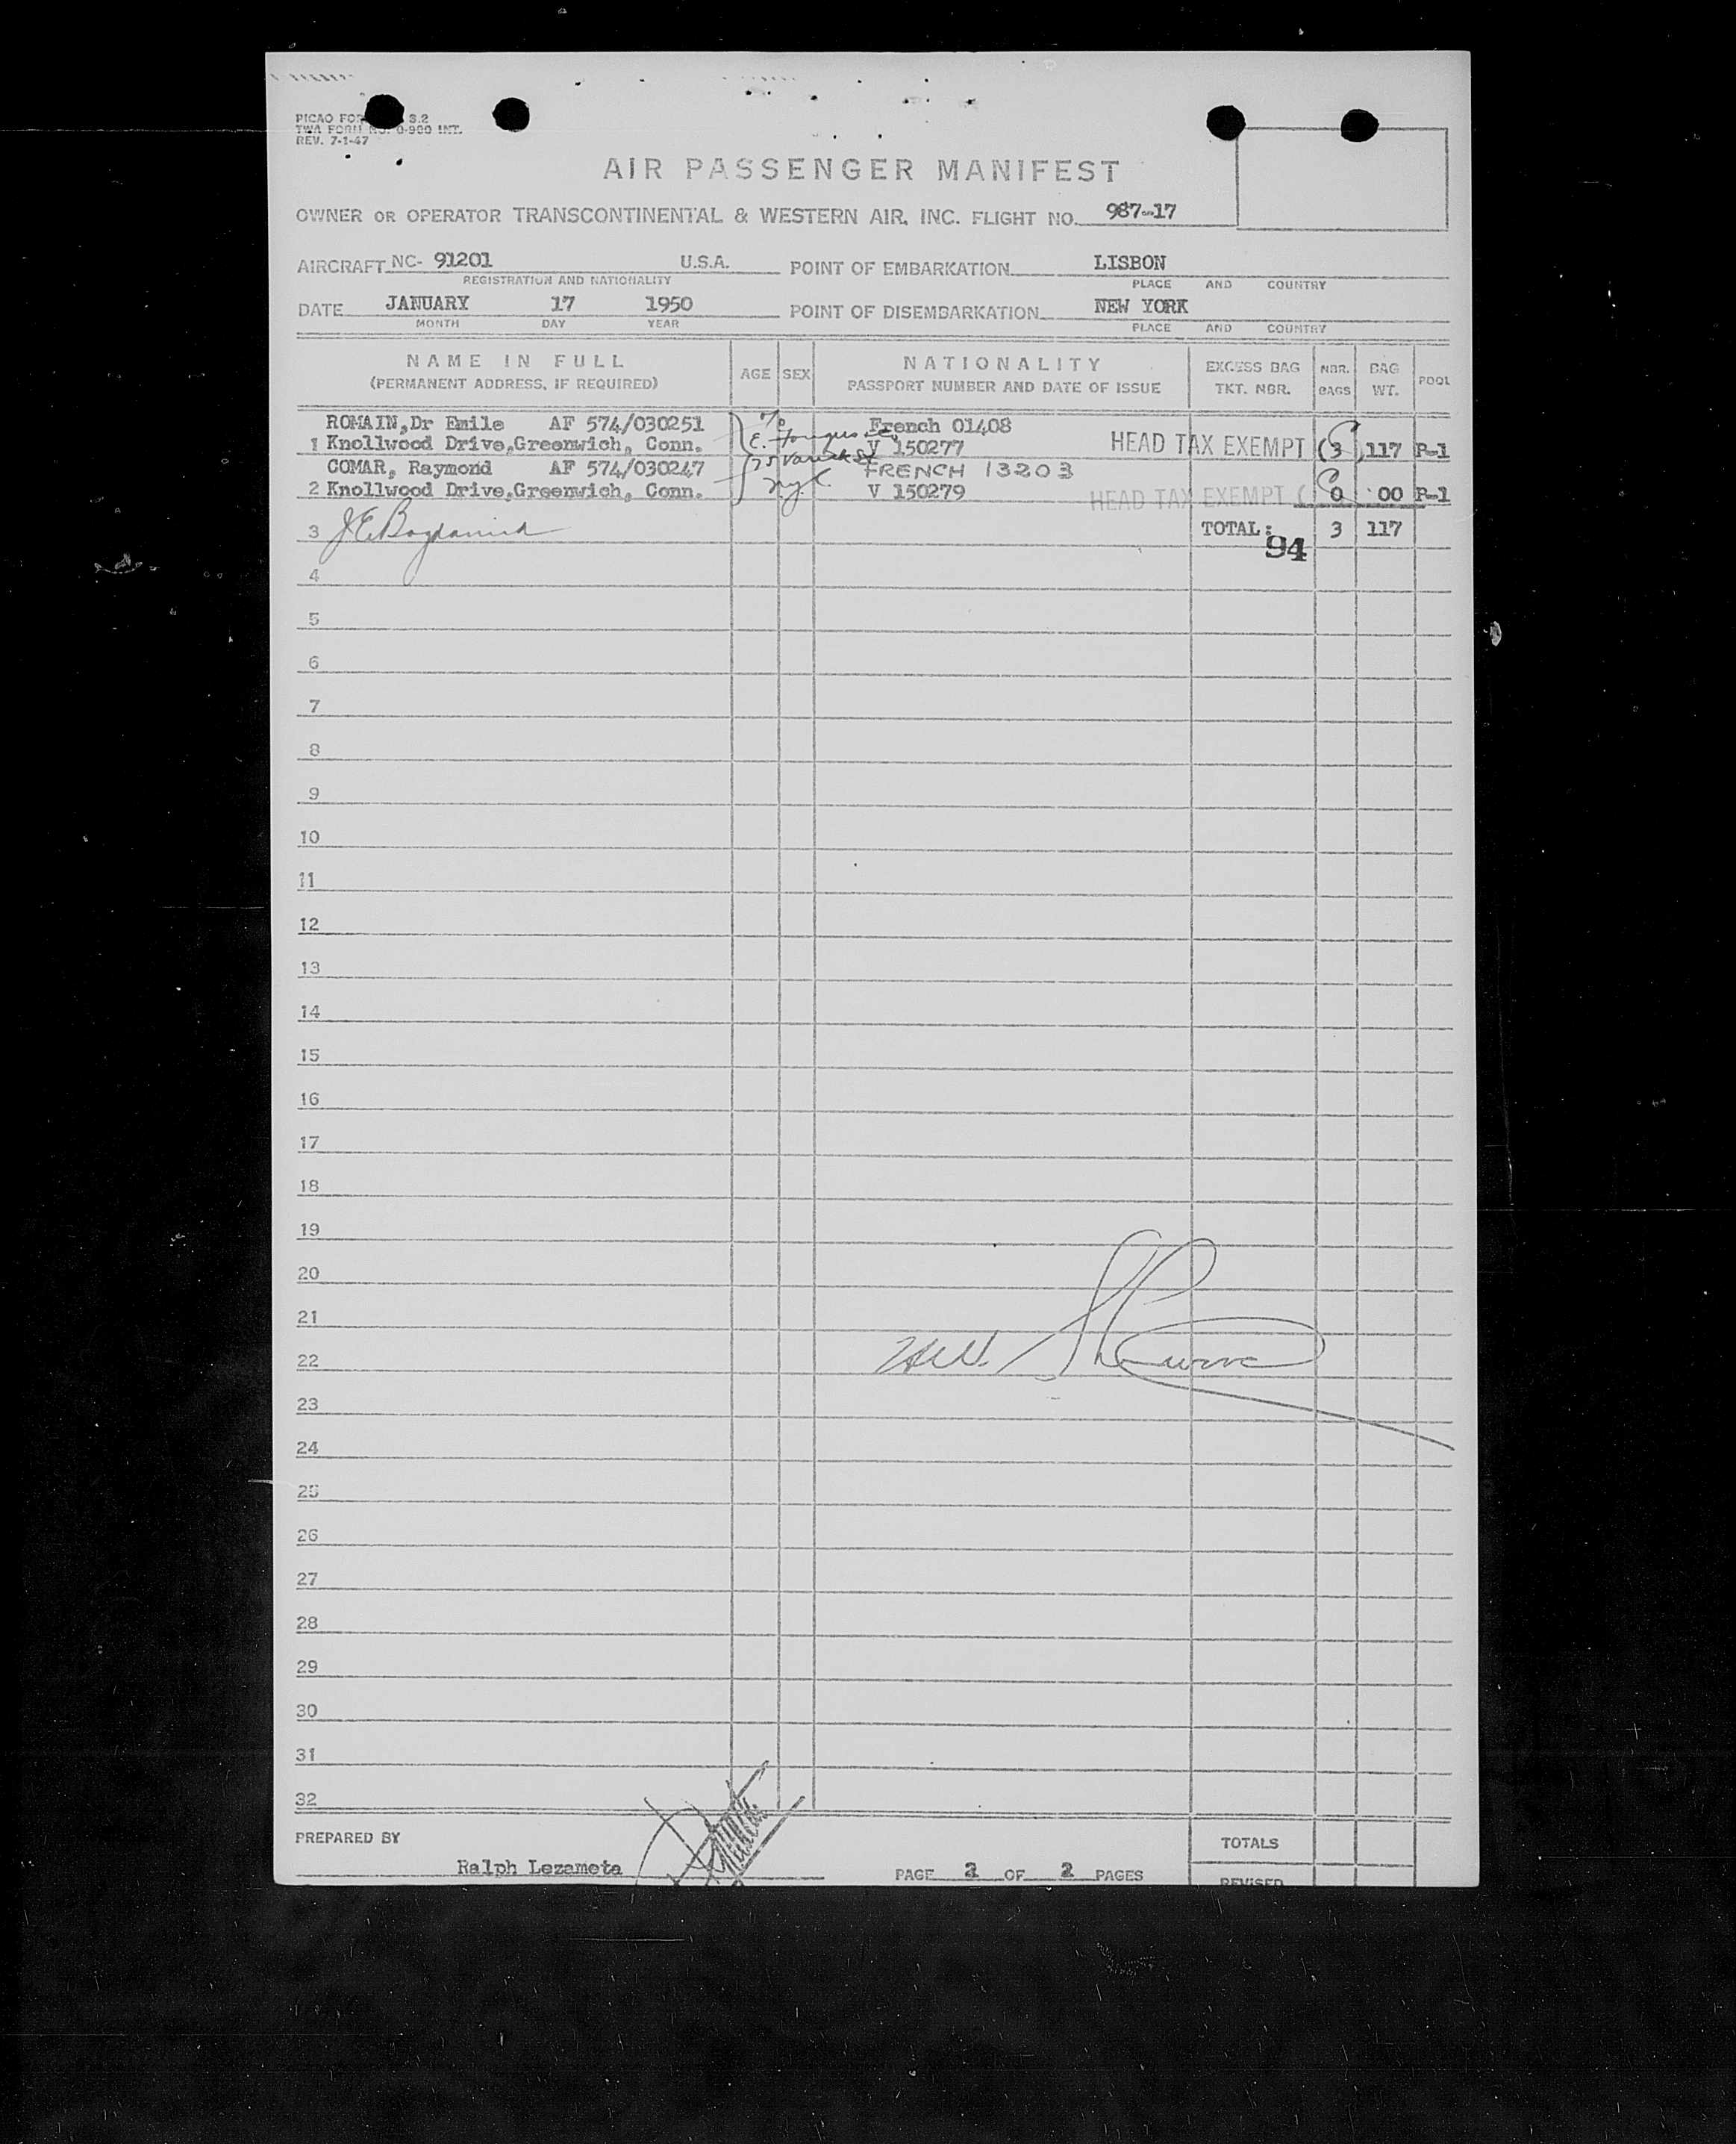 PICAO FO S.2
TWA FORM NO. 0-900 INT.
REV. 7-1-47
AIR PASSENGER MANIFEST
OWNER OR OPERATOR TRANSCONTINENTAL & WESTERN AIR, INC. FLIGHT NO. 987-17
AIRCRAFT NC- 91201 U.S.A. POINT OF EMBARKATION LISBON
REGISTRATION AND NATIONALITY PLACE AND COUNTRY
DATE JANUARY 17 1950 POINT OF DISEMBARKATION NEW YORK
MONTH DAY YEAR PLACE AND COUNTRY
NAME IN FULL AGE SEX NATIONALITY EXCESS BAG NBR. BAG POOL
(PERMANENT ADDRESS, IF REQUIRED) PASSPORT NUMBER AND DATE OF ISSUE TKT. NBR. BAGS WT.
ROMAIN,Dr Emile AF 574/030251 French 01408
1 Knollwood Drive,Greenwich, Conn. E. V 150277 HEAD TAX EXEMPT (3) 117 P-1
COMAR, Raymond AF 574/030247 75 Varick St FRENCH 13203
2 Knollwood Drive,Greenwich, Conn. N.Y.C. V 150279 HEAD TAX EXEMPT ( 0 00 P-1
3 TOTAL: 3 117
94
4
5
6
7
8
9
10
11
12
13
14
15
16
17
18
19
20
21
22
23
24
25
26
27
28
29
30
31
32
PREPARED BY TOTALS
Ralph Lezameta PAGE 2 OF 2 PAGES REVISED